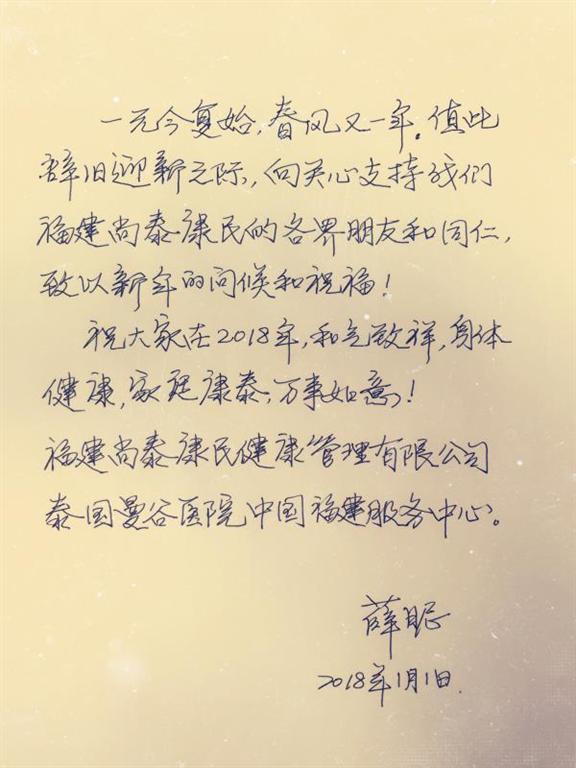 一元今复始,春风又一年。值此
辞旧迎新之际,向关心支持我们
福建尚泰康民的各界朋友和同仁,
致以新年的问候和祝福!
祝大家在2018年,和气致祥,身体
健康,家庭康泰,万事如意!
福建尚泰康民健康管理有限公司
泰国曼谷医院中国福建服务中心。
薛
2018年1月1日.